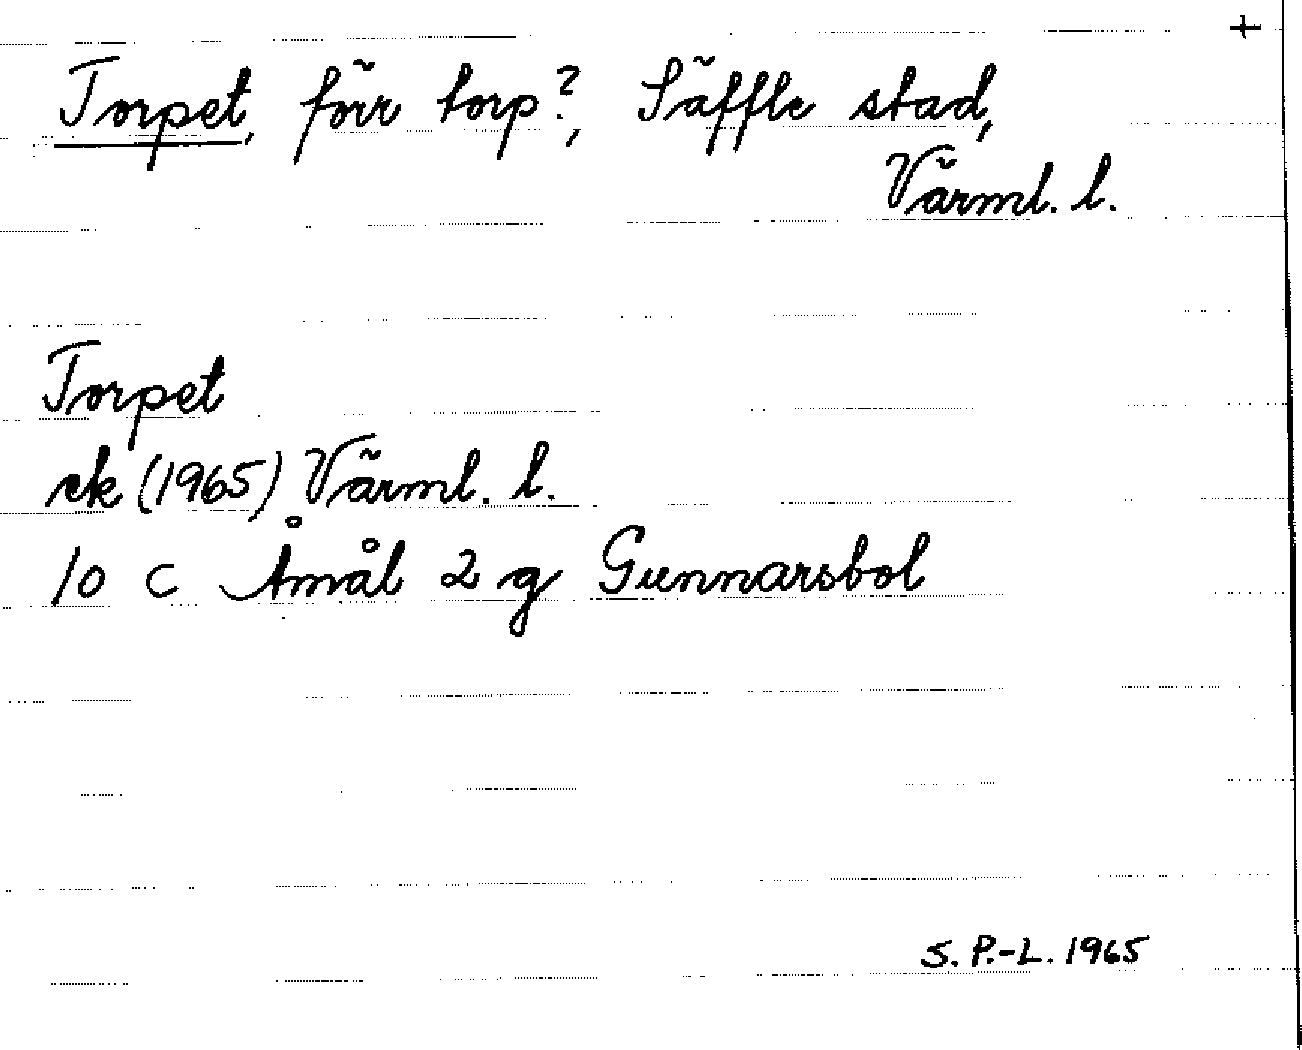 +
Torpet, förr torp?, Säffle stad,
Värml. l.
Torpet
ek (1965) Värml. l.
10 C Åmål 2 g Gunnarsbol
S. P.-L. 1965